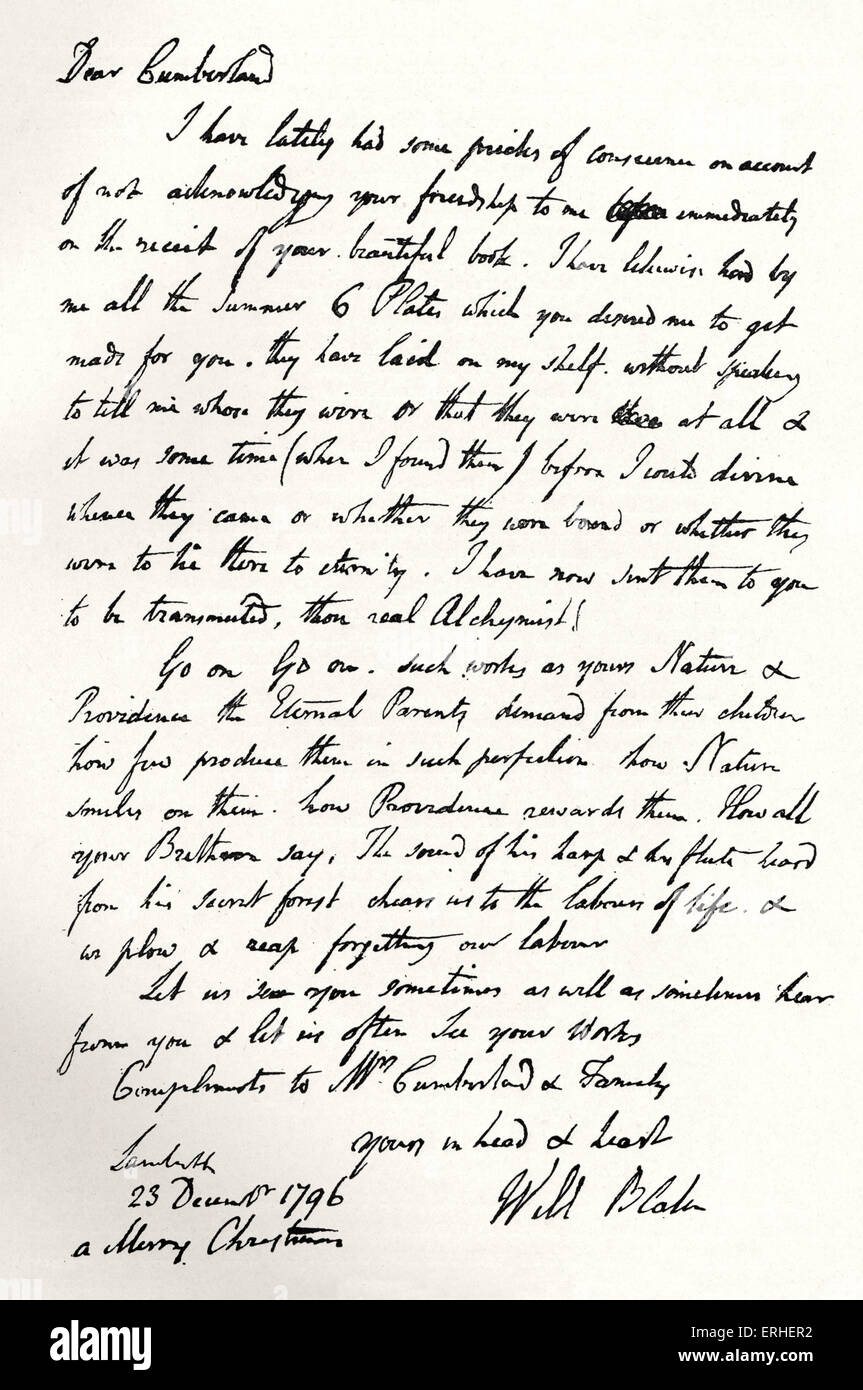 Dear Cumberland
I have lately had some pricks of conscience on account
of not acknowledging your friendship to me immediately
on the reciet of your beautiful book. I have likewise had by
me all the Summer 6 Plates which you desired me to get
made for you. they have laid on my shelf. without speaking
to tell me whose they were or that they were at all &
it was some time (when I found them) before I could divine
whence they came or whether they were bound or whether they
were to lie there to eternity. I have now sent them to you
to be transmuted, thou real Alchymist!
Go on Go on. such works as yours Nature &
Providence the Eternal Parents demand from their children
how few produce them in such perfection how Nature
smiles on them. how Providence rewards them. How all
your Brethren say, The sound of his harp & his flute heard
from his secret forest chears us to the labours of life. &
we plow & reap forgetting our labour
Let us see you sometimes as well as sometimes hear
from you & let us often See your Works
Compliments to Mrs Cumberland & Family
Yours in head & heart
Lambeth
23 Decembr 1796
Will Blake
a Merry Christmas
alamy
Image ID: ERHER2
www.alamy.com